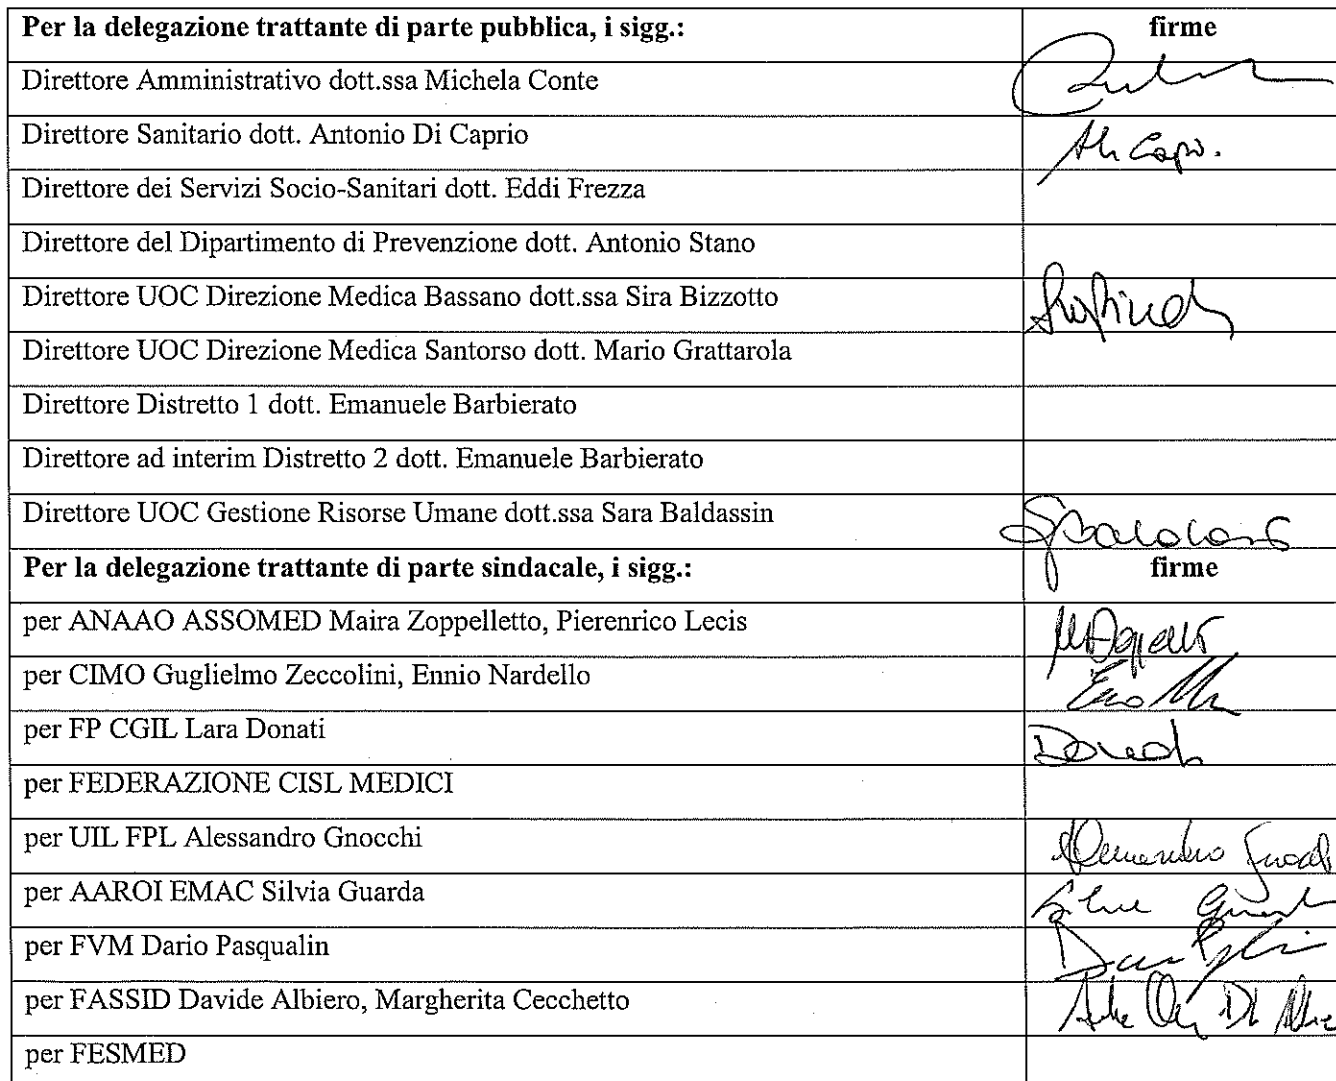 Per la delegazione trattante di parte pubblica, i sigg.: firme
Direttore Amministrativo dott.ssa Michela Conte
Direttore Sanitario dott. Antonio Di Caprio
Direttore dei Servizi Socio-Sanitari dott. Eddi Frezza
Direttore del Dipartimento di Prevenzione dott. Antonio Stano
Direttore UOC Direzione Medica Bassano dott.ssa Sira Bizzotto
Direttore UOC Direzione Medica Santorso dott. Mario Grattarola
Direttore Distretto 1 dott. Emanuele Barbierato
Direttore ad interim Distretto 2 dott. Emanuele Barbierato
Direttore UOC Gestione Risorse Umane dott.ssa Sara Baldassin
Per la delegazione trattante di parte sindacale, i sigg.: firme
per ANAAO ASSOMED Maira Zoppelletto, Pierenrico Lecis
per CIMO Guglielmo Zeccolini, Ennio Nardello
per FP CGIL Lara Donati
per FEDERAZIONE CISL MEDICI
per UIL FPL Alessandro Gnocchi
per AAROI EMAC Silvia Guarda
per FVM Dario Pasqualin
per FASSID Davide Albiero, Margherita Cecchetto
per FESMED